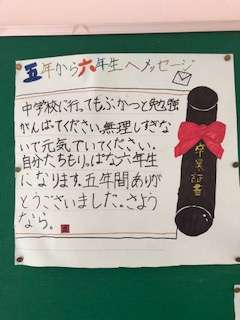 五年から六年生へメッセージ
中学校に行ってもぶかつと勉強
がんばってください。無理しすぎな
いで元気でいてください。
自分たちもりっぱな六年生
になります。五年間ありが
とうございました。さよう
なら。
卒業証書